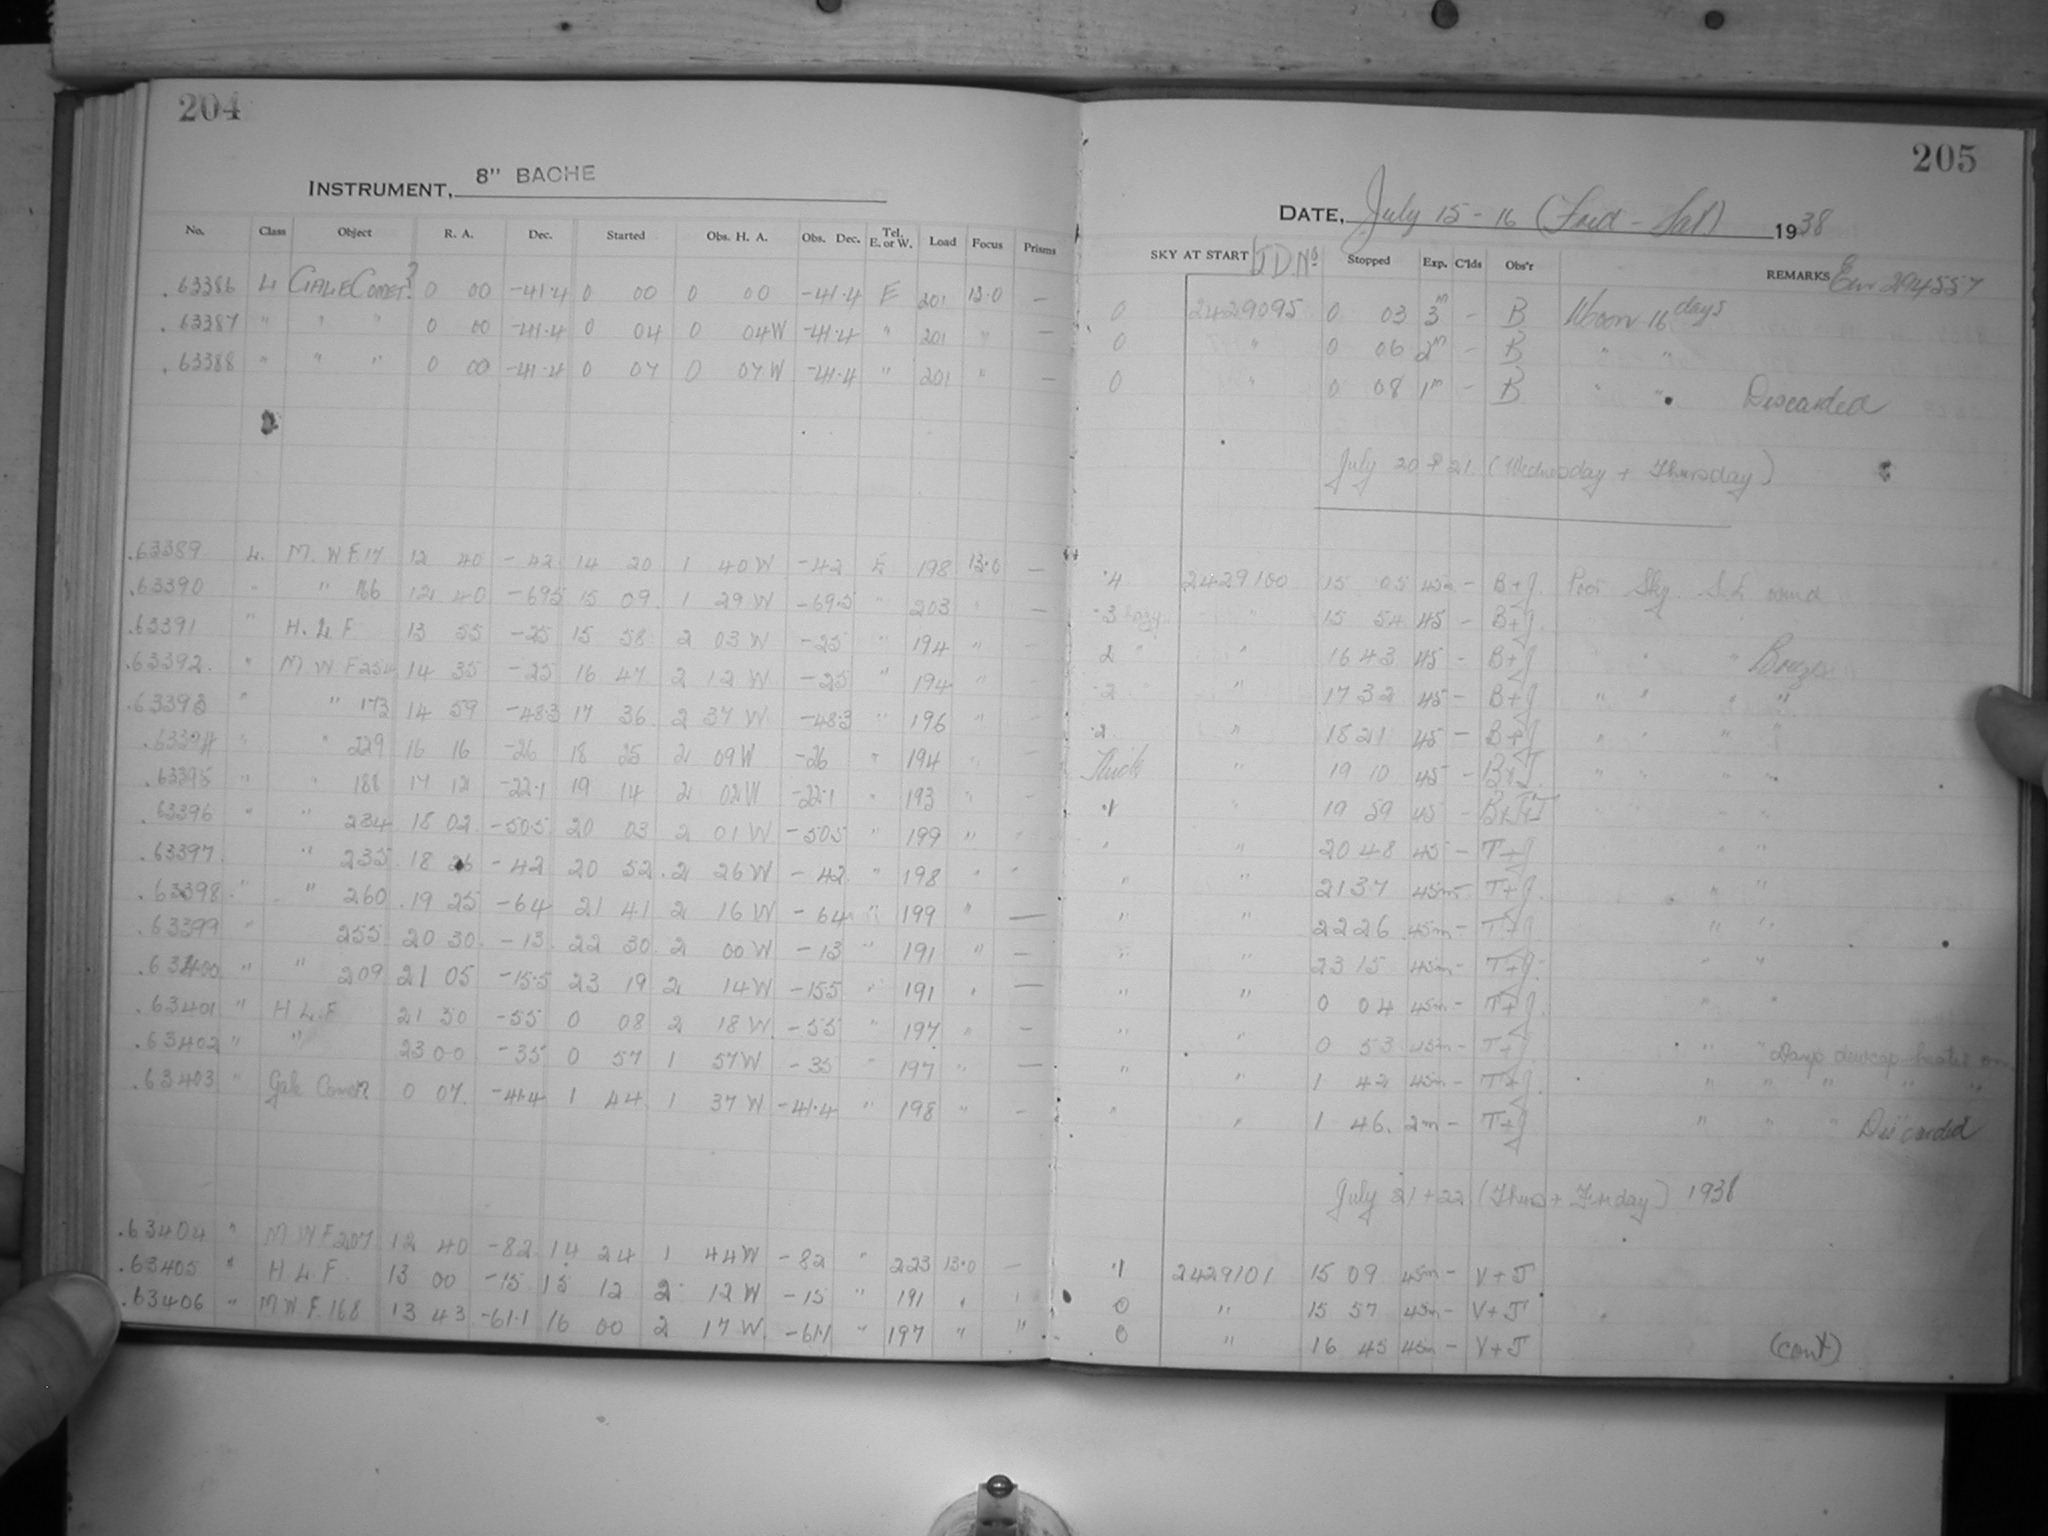 204
INSTRUMENT, 8" BACHE
No. Class Object R. A. Dec. Started Obs. H. A. Obs. Dec. Tel. E. or W. Load Focus Prisms
.63386 L GALE COMET? 0 00 -41.4 0 00 0 00 -41.4 E 201 13.0 —
.63387 " " " 0 00 -41.4 0 04 0 04W -41.4 " 201 " —
.63388 " " " 0 00 -41.4 0 07 0 07W -41.4 " 201 " —
.63389 L. M.W F.17 12 40 -42 14 20 1 40W -42 E 198 13.0 —
.63390 " " 166 12 40 -69.5 15 09 1 29W -69.5 " 203 " —
.63391 " H.L.F 13 55 -25 15 58 2 03W -25 " 194 " —
.63392. " M.W.F 254 14 35 -25 16 47 2 12W -25 " 194 " —
.63393 " " 173 14 59 -48.3 17 36 2 37W -48.3 " 196 " —
.63394 " " 229 16 16 -26 18 25 2 09W -26 " 194 " —
.63395 " " 188 17 12 -22.1 19 14 2 02W -22.1 " 193 " —
.63396 " " 234 18 02 -50.5 20 03 2 01W -50.5 " 199 " "
.63397 " 235 18 26 -42 20 52 2 26W -42 " 198 " "
.63398 " " 260 19 25 -64 21 41 2 16W -64 " 199 " —
.63399 " 255 20 30 -13 22 30 2 00W -13 " 191 " —
.63400 " " 209 21 05 -15.5 23 19 2 14W -15.5 " 191 " —
.63401 " H.L.F 21 50 -55 0 08 2 18W -55 " 197 " —
.63402 " " 23 00 -35 0 57 1 57W -35 " 197 " —
.63403 " Gale Comet? 0 07 -41.4 1 44 1 37W -41.4 " 198 " —
.63404 " M W F 207 12 40 -82 14 24 1 44W -82 " 223 13.0 —
.63405 " H.L.F. 13 00 -15 15 12 2 12W -15 " 191 " "
.63406 " M W F. 168 13 43 -61.1 16 00 2 17W -61.1 " 197 " "
205
DATE, July 15-16 (Frid - Sat) 1938
SKY AT START J D No Stopped Exp. C'lds Obs'r REMARKS
0 2429095 0 03 3m — B Moon 16 days
0 " 0 06 2m — B " "
0 " 0 08 1m — B " " Discarded
July 20 + 21 (Wednesday + Thursday)
.4 2429100 15 05 45m — B+J. Poor Sky. S.E. wind
.3 hazy " 15 54 45 — B+J.
2 " " 16 43 45 — B+J " " "
.2 " 17 32 45 — B+J " " " "
.2 " 18 21 45 — B+J " " " "
Thick " 19 10 45 — B+J. " " " "
.1 " 19 59 45 — B+T+J " "
" " 20 48 45 — T+J " "
" " 21 37 45m — T+J. " "
" " 22 26 45m — T+J " "
" " 23 15 45m — T+J. " "
" " 0 04 45m — T+J " "
" " 0 53 45m — T+J " " Damp dewcap heater on
" " 1 42 45m — T+J. " " " " "
" " 1 46 2m — T+J " " " Discarded
July 21+22 (Thurs + Friday) 1938
.1 2429101 15 09 45m — V+J
0 " 15 57 45m — V+J
0 " 16 45 45m — V+J (cont)